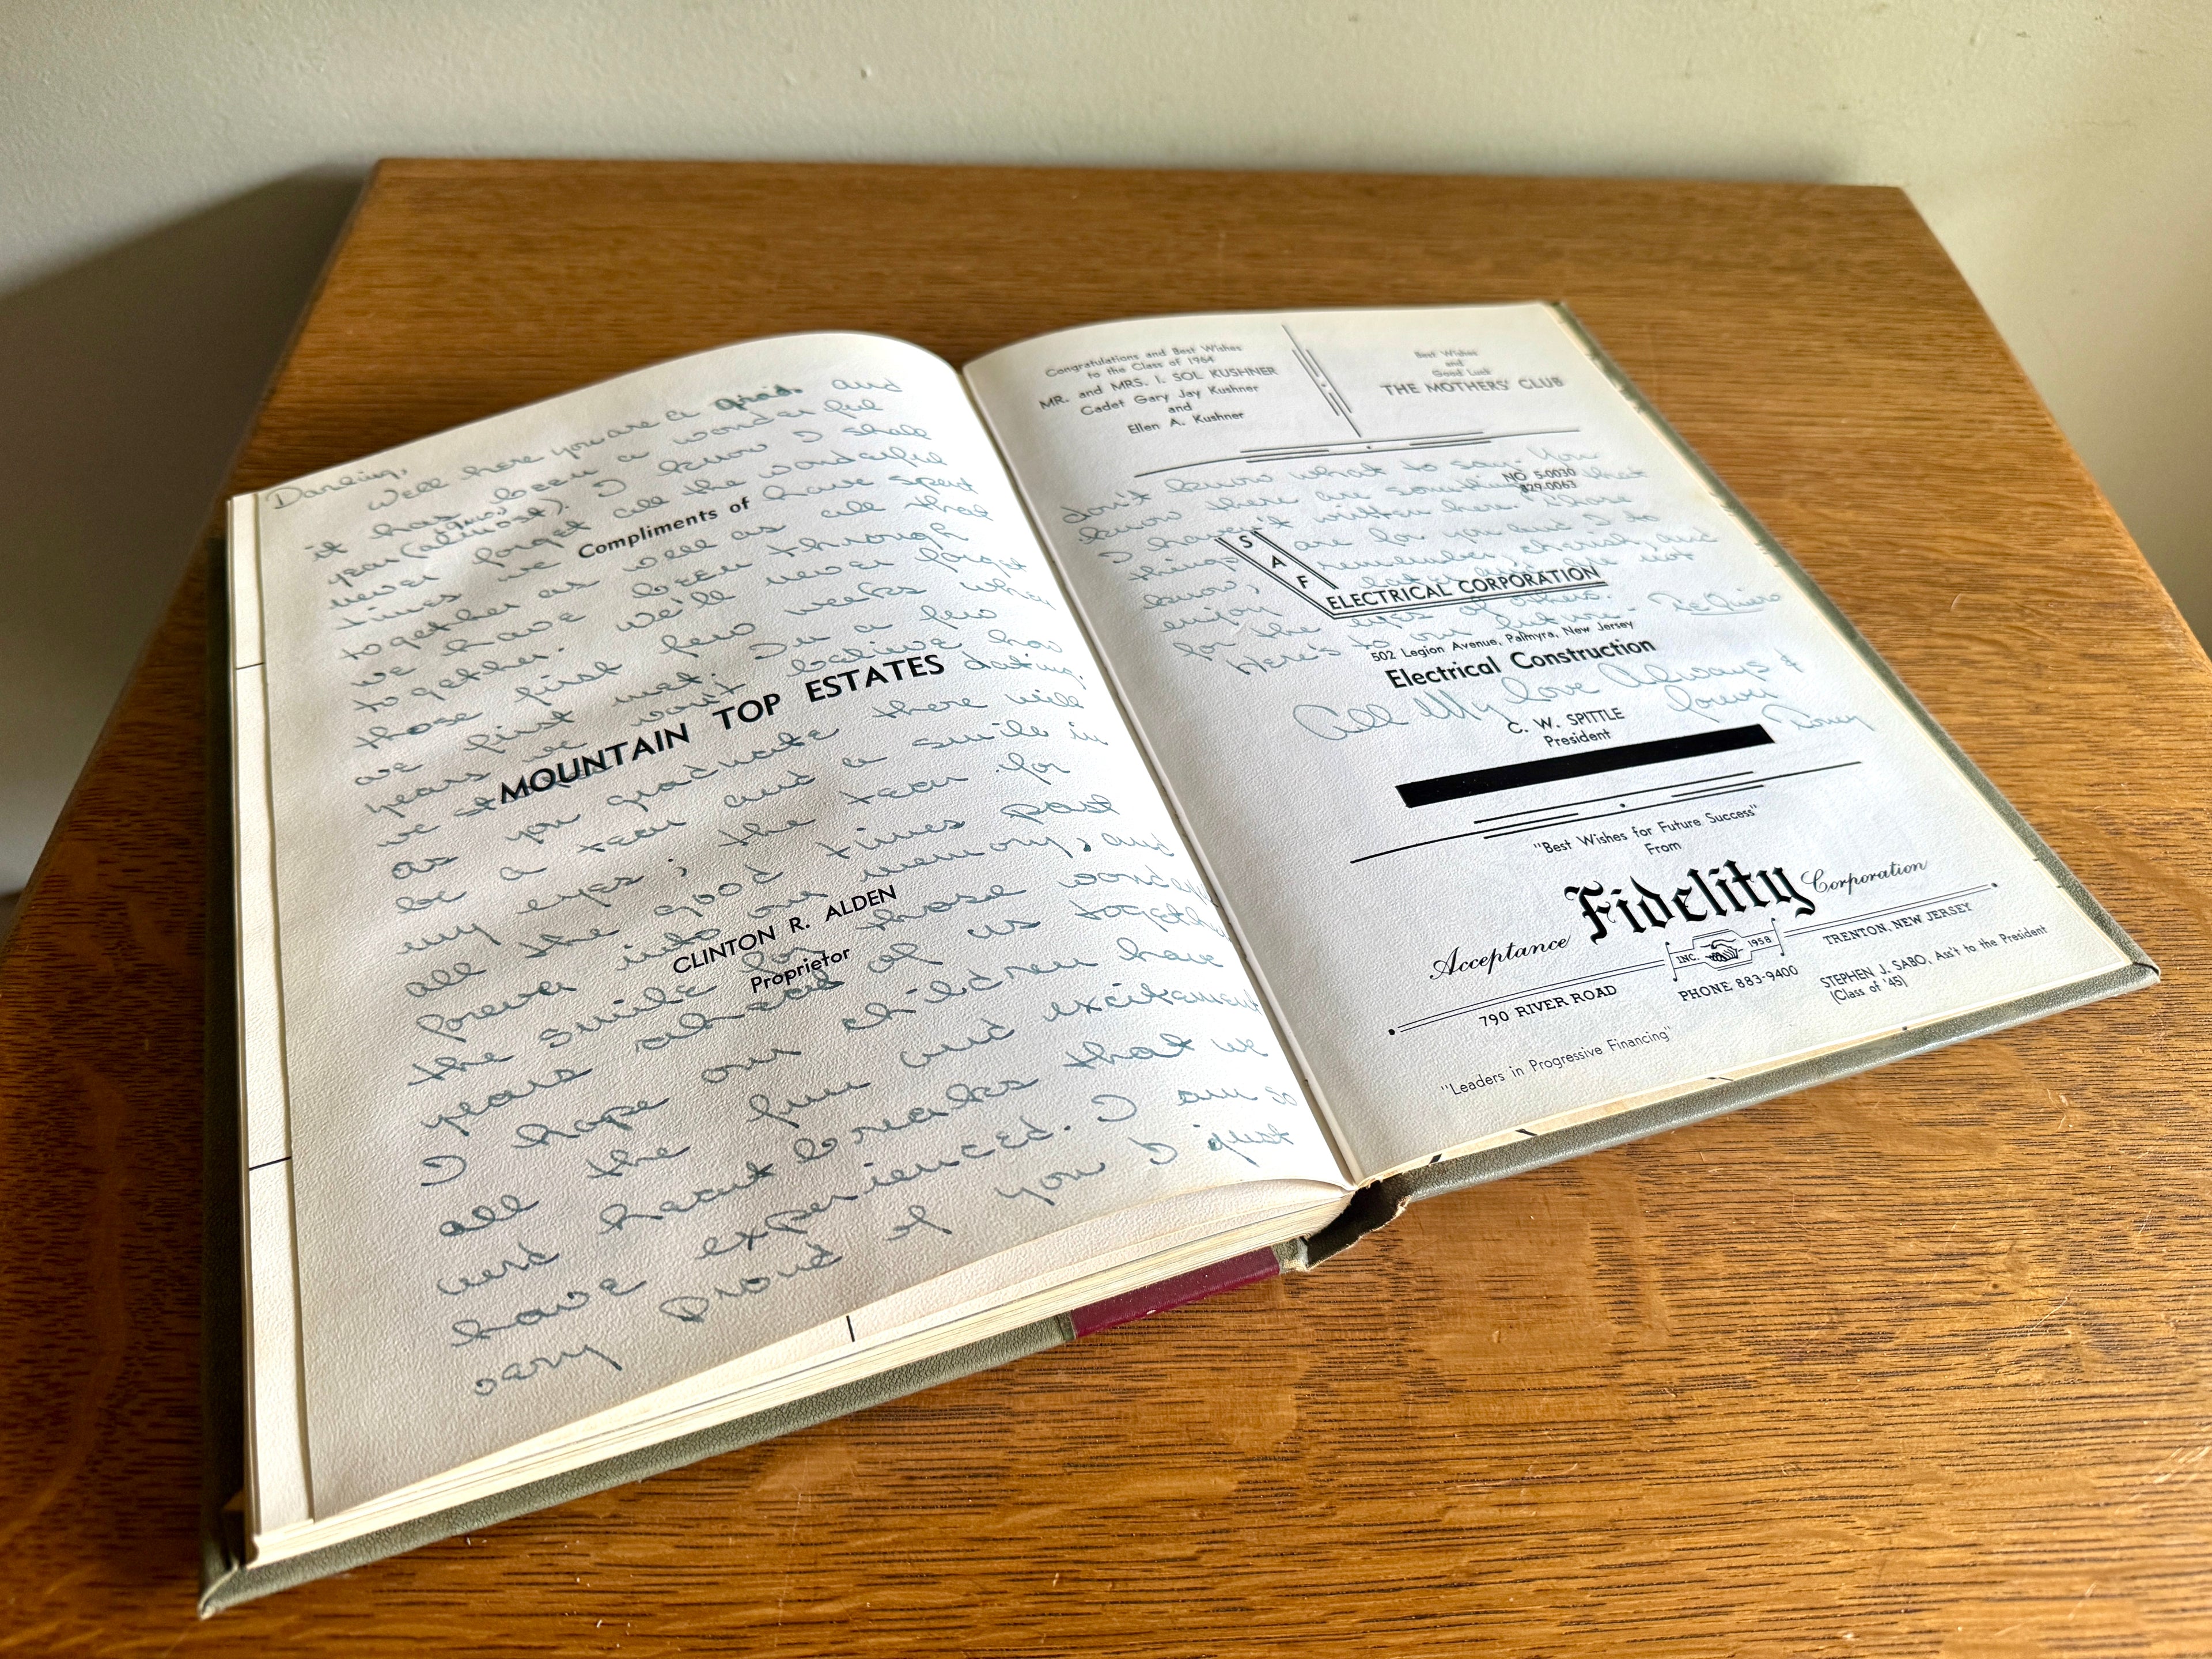 Darling,
Well here you are a grad. and
it has been a wonderful
year (almost). I know I shall
never forget all the wonderful
times we have spent
together as well as all that
we have been through
together. We'll never forget
those first few weeks when
we first met. In a few
years we won't believe how
we dating.
as you graduate there will
be a tear and a smile in
my eyes; the tear for
all the good times past
forever into our memory, and
the smile for those wonderful
years ahead of us together
I hope our children have
all the fun and excitement
and heart breaks that we
have experienced. I am so
very proud of you I just
Compliments of
MOUNTAIN TOP ESTATES
CLINTON R. ALDEN
Proprietor
Congratulations and Best Wishes
to the Class of 1964
MR. and MRS. I. SOL KUSHNER
Cadet Gary Jay Kushner
and
Ellen A. Kushner
Best Wishes
and
Good Luck
THE MOTHERS' CLUB
don't know what to say. You
know there are somethings that
I haven't written here. Those
things are for you and I to
know, remember, cherish, and
enjoy but not
for the eyes of others.
Here's to our future - Te Quiero
All My love Always &
forever
NO 5-0030
829-0063
SAF
ELECTRICAL CORPORATION
502 Legion Avenue, Palmyra, New Jersey
Electrical Construction
C. W. SPITTLE
President
"Best Wishes for Future Success"
From
Fidelity
Acceptance Corporation
INC. 1958
790 RIVER ROAD TRENTON, NEW JERSEY
PHONE 883-9400
STEPHEN J. SABO, Ass't to the President
(Class of '45)
"Leaders in Progressive Financing"